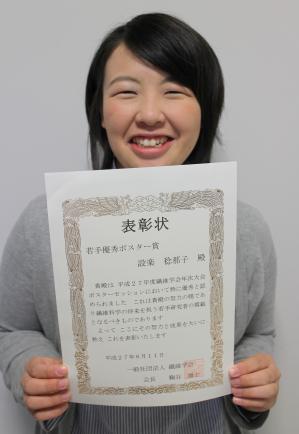 表彰状
若手優秀ポスター賞
設楽 稔那子 殿
貴殿は 平成27年度繊維学会年次大会
ポスターセッションにおいて特に優秀と認
められました これは貴殿の努力の賜であ
り繊維科学の将来を担う若手研究者の模範
となるべきものであります
よって ここにその努力と成果を大いに
称え これを表彰いたします
平成27年6月11日
一般社団法人 繊維学会
会長 鞠谷 雄士